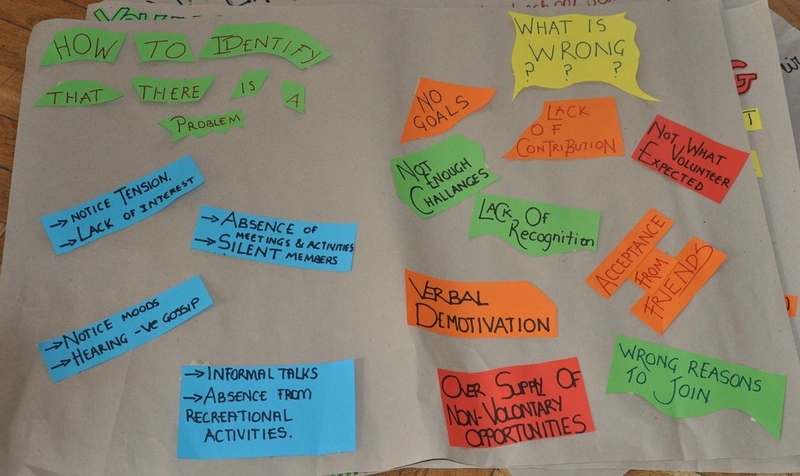 HOW TO IDENTIFY
THAT THERE IS A
PROBLEM
→ NOTICE TENSION.
→ LACK OF INTEREST
→ ABSENCE OF
MEETINGS & ACTIVITIES
→ SILENT MEMBERS
→ NOTICE MOODS
→ HEARING -VE GOSSIP
→ INFORMAL TALKS
→ ABSENCE FROM
RECREATIONAL
ACTIVITIES.
WHAT IS
WRONG
? ? ?
NO
GOALS
LACK
OF
CONTRIBUTION
NOT WHAT
VOLUNTEER
EXPECTED
NOT
ENOUGH
CHALLANGES
LACK OF
Recognition
ACCEPTANCE
FROM
FRIENDS
VERBAL
DEMOTIVATION
OVER SUPPLY OF
NON-VOLONTARY
OPPORTUNITIES
WRONG REASONS
TO JOIN